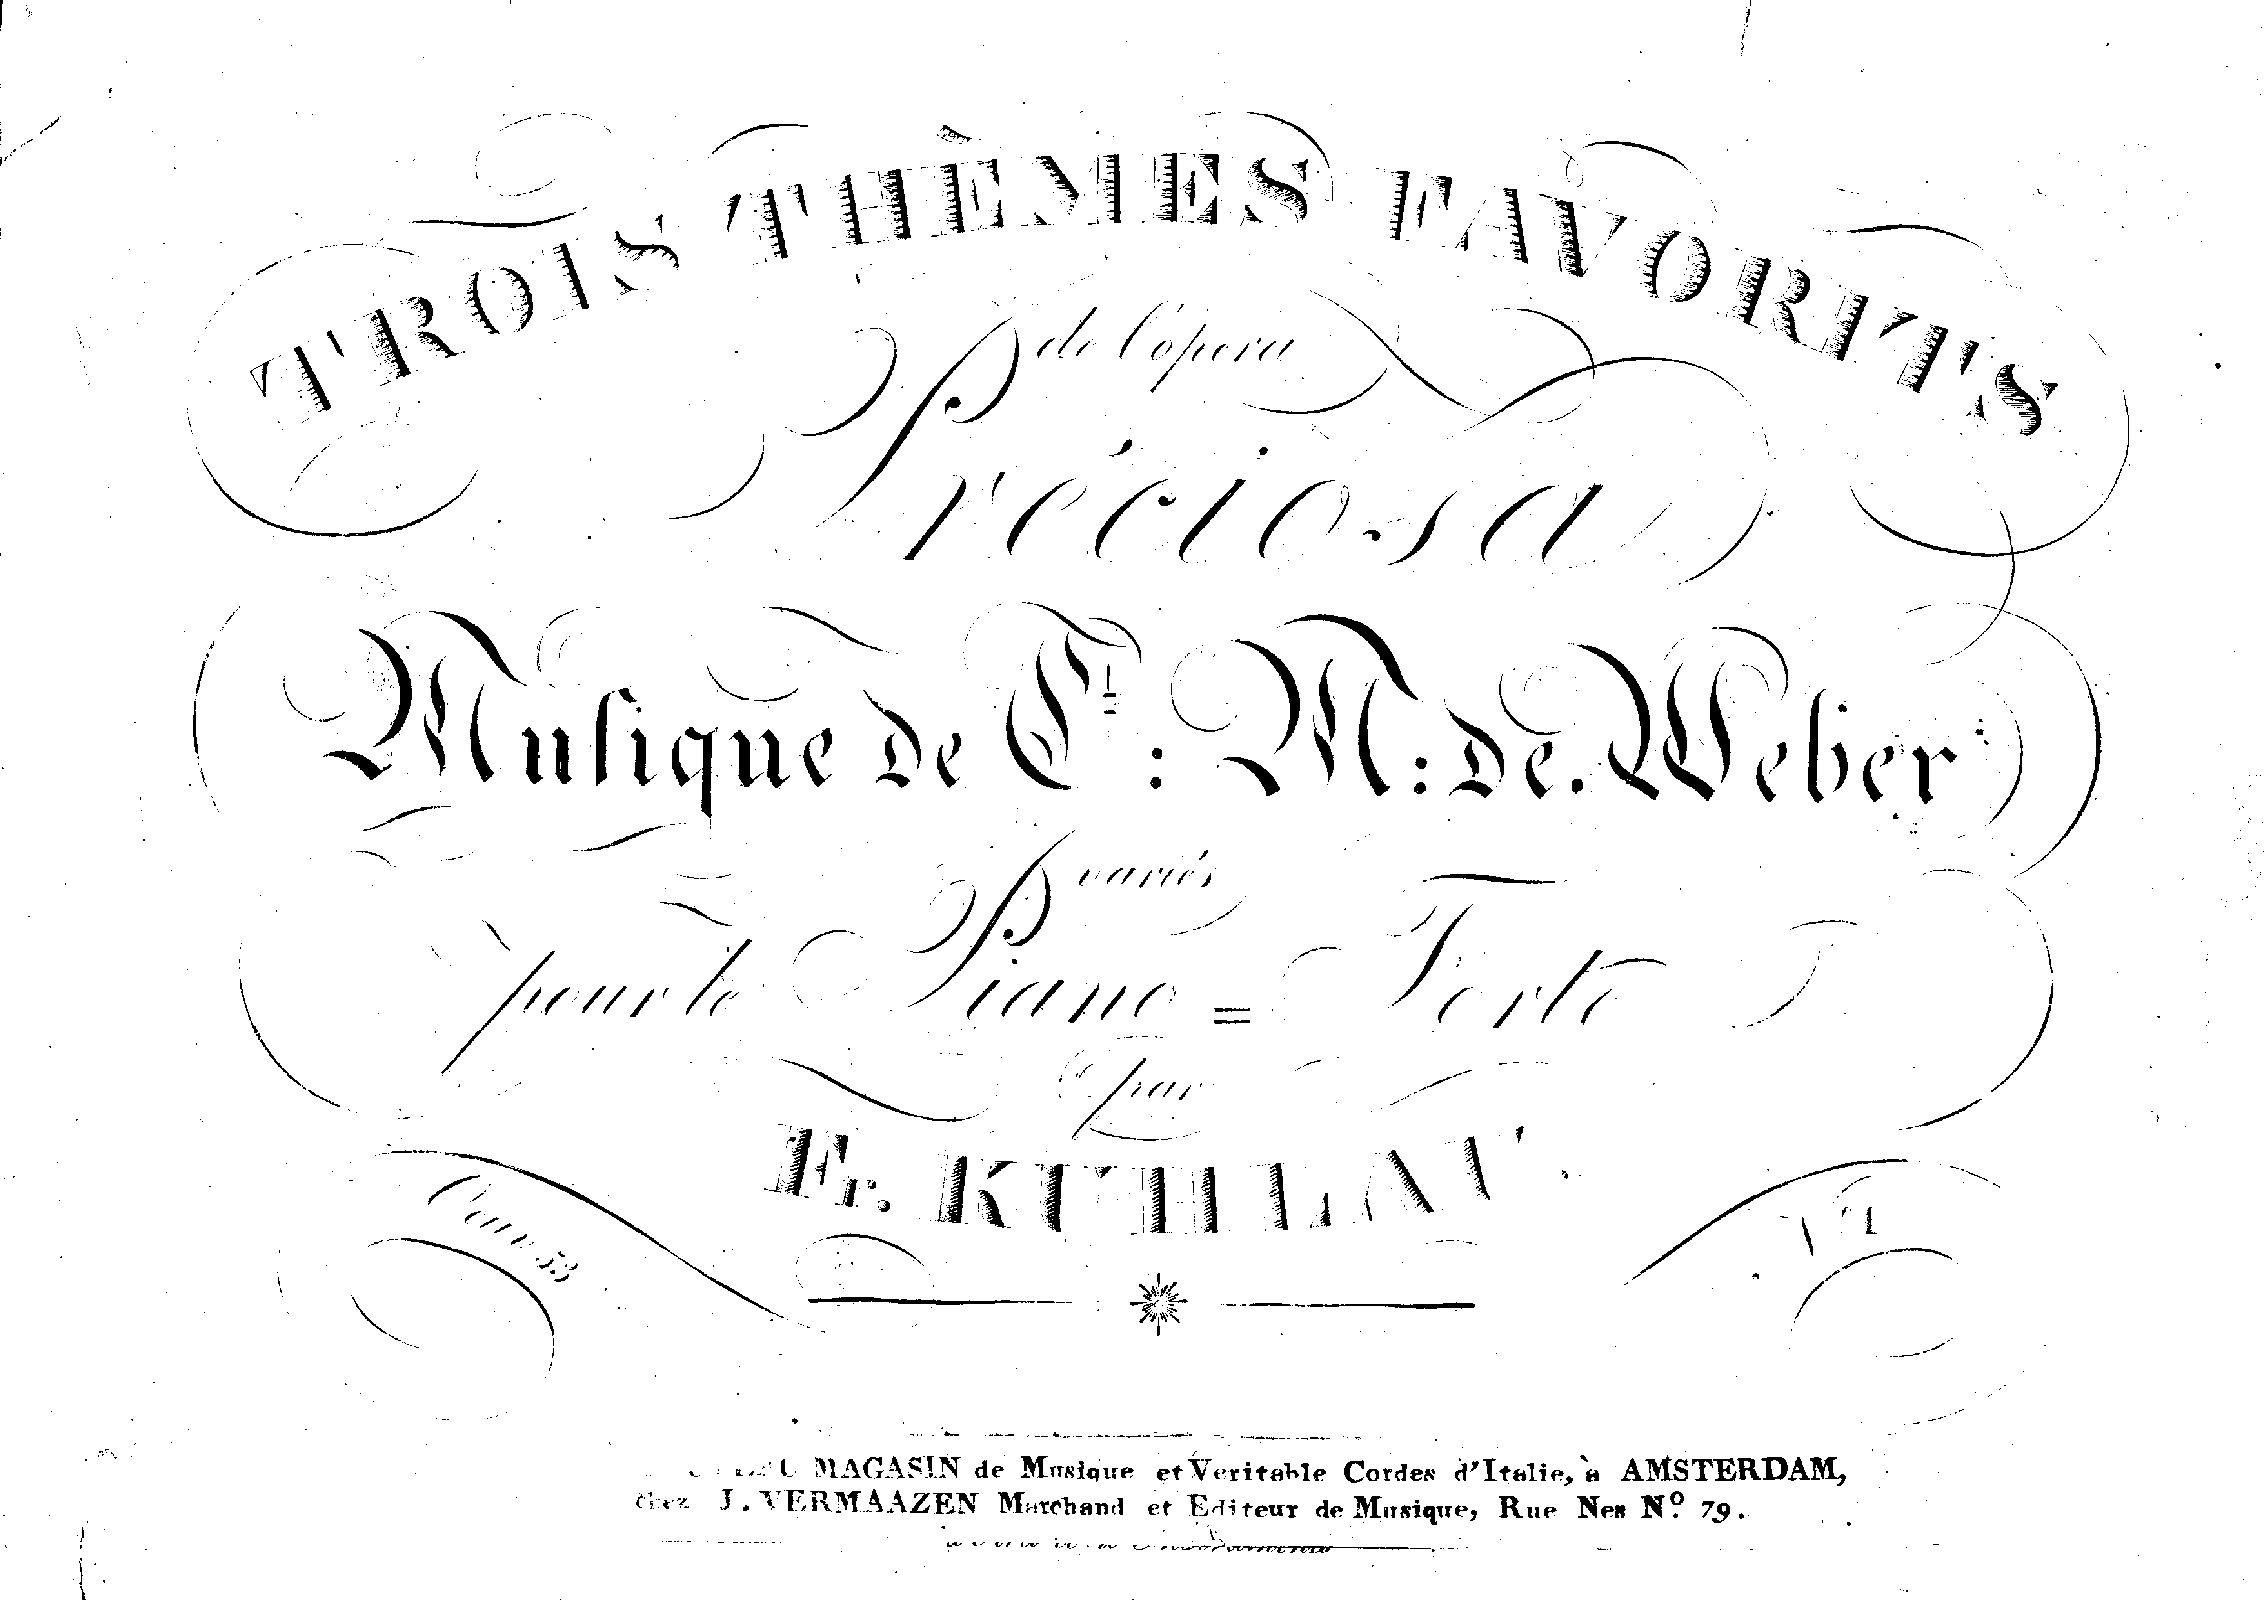 TROIS THÈMES FAVORITS
de l'opera
Préciosa
Musique de C: M: de. Weber
variés
pour le Piano = Forte
par
Fr. KUHLAU.
53
MAGASIN de Musique et Veritable Cordes d'Italie, à AMSTERDAM,
chez J. VERMAAZEN Marchand et Editeur de Musique, Rue Nes Nº 79.